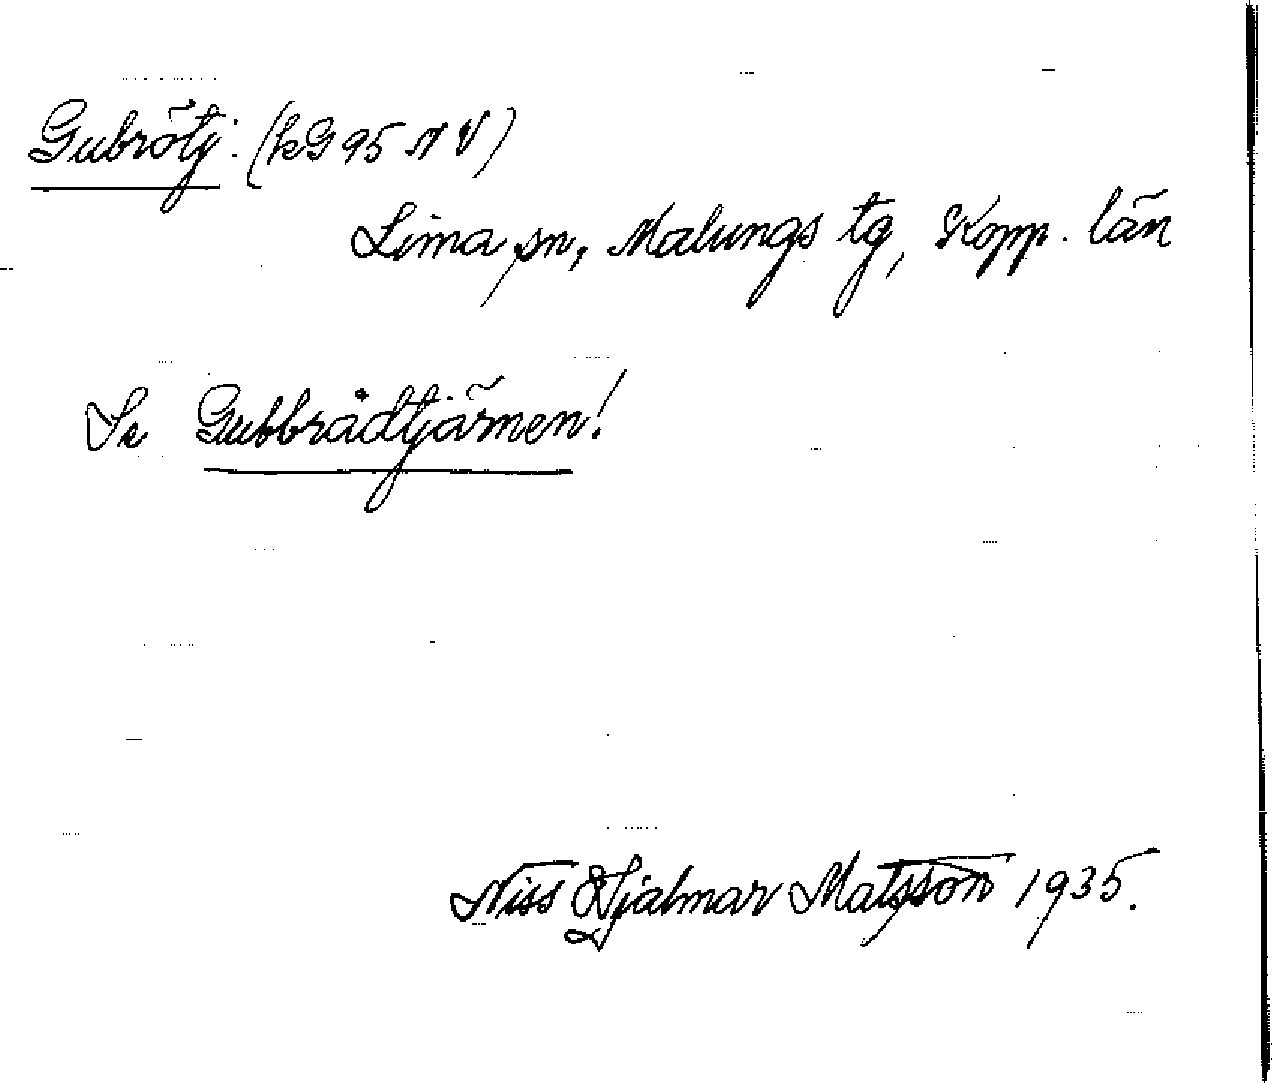 Gubrötj. (kG 95 NV)
Lima sn, Malungs tg, Kopp. län
Se Gubbrådtjärnen!
Niss Hjalmar Matsson 1935.